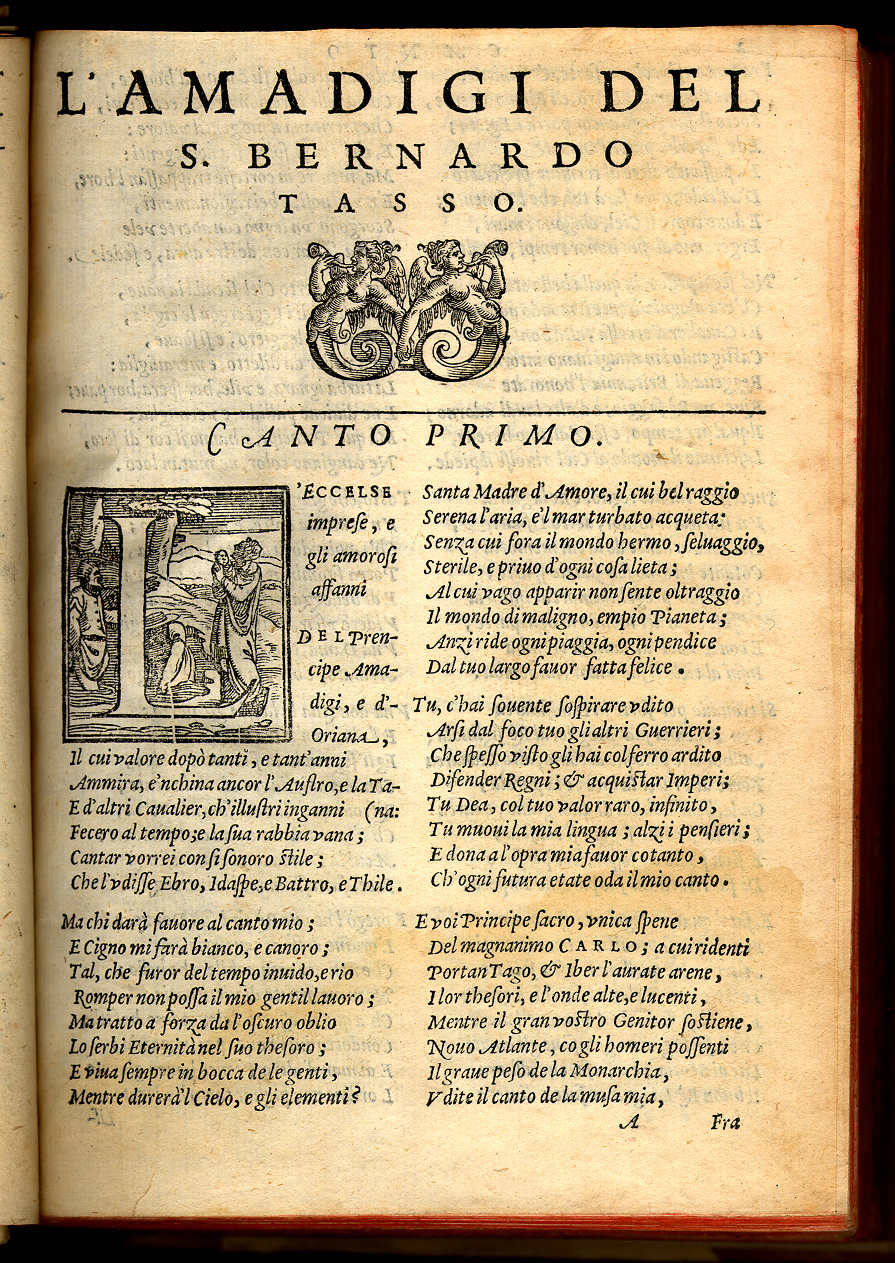 L'AMADIGI DEL
S. BERNARDO
TASSO.
CANTO PRIMO.
L'ECCELSE
impreſe, e
gli amoroſi
affanni
DEL Pren-
cipe Ama-
digi, e d'-
Oriana,
Il cui valore dopò tanti, e tant'anni
Ammira, e'nchina ancor l'Auſtro, e la Ta-
E d'altri Caualier, ch'illuſtri inganni (na:
Fecero al tempo; e la ſua rabbia vana;
Cantar vorrei con ſi ſonoro ſtile;
Che l'vdiſſe Ebro, Idaſpe, e Battro, e Thile.
Ma chi darà fauore al canto mio;
E Cigno mi farà bianco, e canoro;
Tal, che furor del tempo inuido, e rio
Romper non poſſa il mio gentil lauoro;
Ma tratto a forza da l'oſcuro oblio
Lo ſerbi Eternità nel ſuo theſoro;
E viua ſempre in bocca de le genti,
Mentre durerà'l Cielo, e gli elementi?
Santa Madre d'Amore, il cui bel raggio
Serena l'aria, e'l mar turbato acqueta:
Senza cui fora il mondo hermo, ſeluaggio,
Sterile, e priuo d'ogni coſa lieta;
Al cui vago apparir non ſente oltraggio
Il mondo di maligno, empio Pianeta;
Anzi ride ogni piaggia, ogni pendice
Dal tuo largo fauor fatta felice.
Tu, c'hai ſouente ſoſpirare vdito
Arſi dal foco tuo gli altri Guerrieri;
Che ſpeſſo viſto gli hai col ferro ardito
Difender Regni; & acquiſtar Imperi;
Tu Dea, col tuo valor raro, infinito,
Tu muoui la mia lingua; alzi i penſieri;
E dona a l'opra mia fauor cotanto,
Ch'ogni futura etate oda il mio canto.
E voi Principe ſacro, vnica ſpene
Del magnanimo CARLO; a cui ridenti
Portan Tago, & Iber l'aurate arene,
I lor theſori, e l'onde alte, e lucenti,
Mentre il gran voſtro Genitor ſoſtiene,
Nouo Atlante, co gli homeri poſſenti
Il graue peſo de la Monarchia,
Vdite il canto de la muſa mia,
A Fra